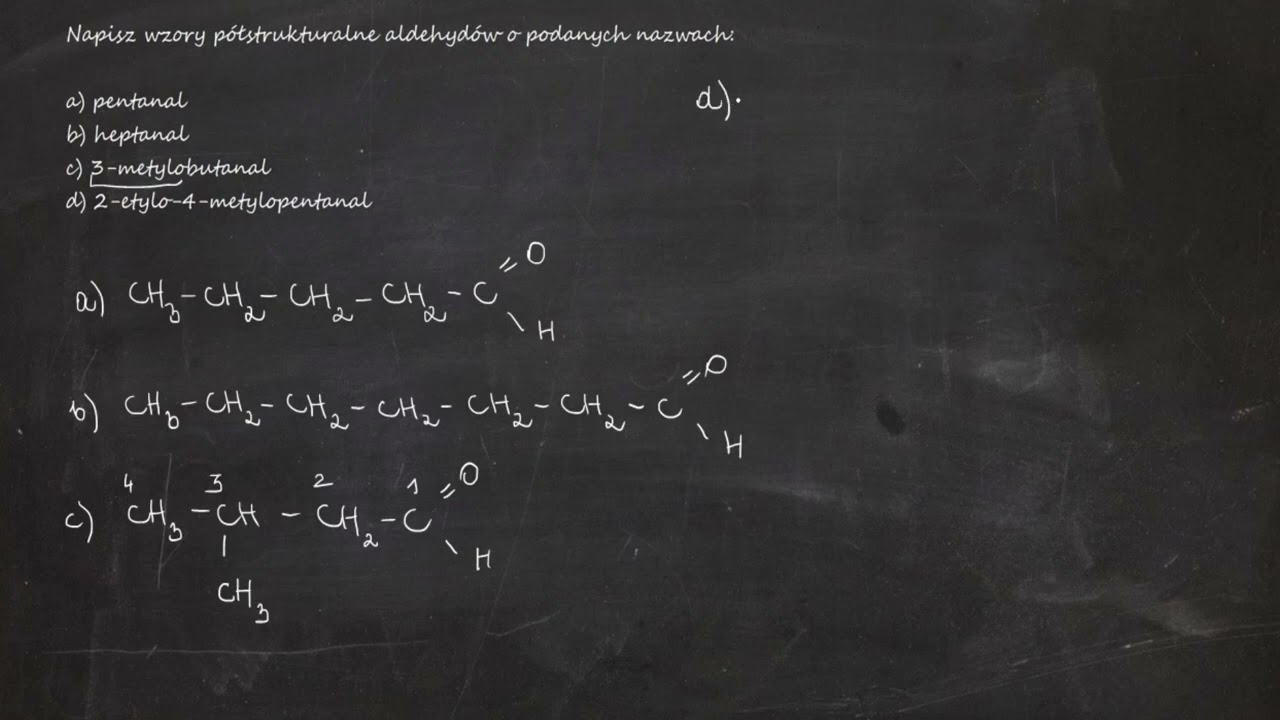 Napisz wzory półstrukturalne aldehydów o podanych nazwach:
a) pentanal
b) heptanal
c) 3-metylobutanal
d) 2-etylo-4-metylopentanal
d)
a) CH3-CH2-CH2-CH2-C
=O
\H
b) CH3-CH2-CH2-CH2-CH2-CH2-C
=O
\H
4 3 2 1
c) CH3-CH-CH2-C
=O
\H
|
CH3